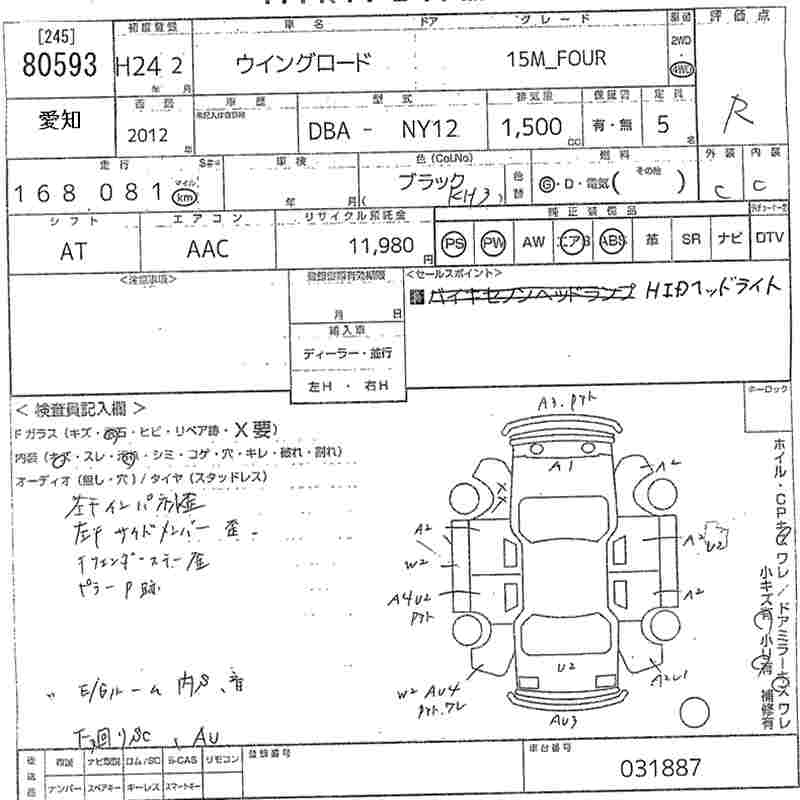 [245]
80593
初度登録
H24 2
年 月
車名 ドア グレード
ウイングロード 15M_FOUR
2WD
・
4WD
評価点
R
愛知
西暦
2012
年
車歴
型式
DBA - NY12
排気量
1,500
cc
保証書
有・無
定員
5
名
走行
168 081
マイル
km
車検
年 月
色 (Col.No)
ブラック
(KH3)
色替
燃料
その他
G・D・電気( )
外装
C
内装
C
シフト
AT
エアコン
AAC
リサイクル預託金
11,980
円
純正装備品
PS PW AW エアB ABS 革 SR ナビ DTV
<注意事項>
登録証有効期限
月 日
輸入車
ディーラー・並行
左H ・ 右H
<セールスポイント>
バイキセノンヘッドランプ HIDヘッドライト
ホーロック
< 検査員記入欄 >
Fガラス (キズ・飛石・ヒビ・リペア跡・X要)
内装 (キズ・スレ・汚れ・シミ・コゲ・穴・キレ・破れ・割れ)
オーディオ (無し・穴) / タイヤ (スタッドレス)
左Fインパネ歪
左Fサイドメンバー 歪
Fフェンダーステー歪
ピラーP跡
E/Gルーム 内S、音
下廻りSC 、AU
A3.Pyト
A1
A2
XX
A2
W2
A2
U2
A4U2
Pyト
A2
U2
W2 AU4
Pyト.ワレ
A2U1
AU3
ホイル・CPキズワレ / ドアミラーキズワレ
小キズ有 小U有 補修有
後送品
記録 ナビ取説 ロム/SD S-CAS リモコン
ナンバー スペアキー キーレス スマートキー
登録番号
車台番号
031887